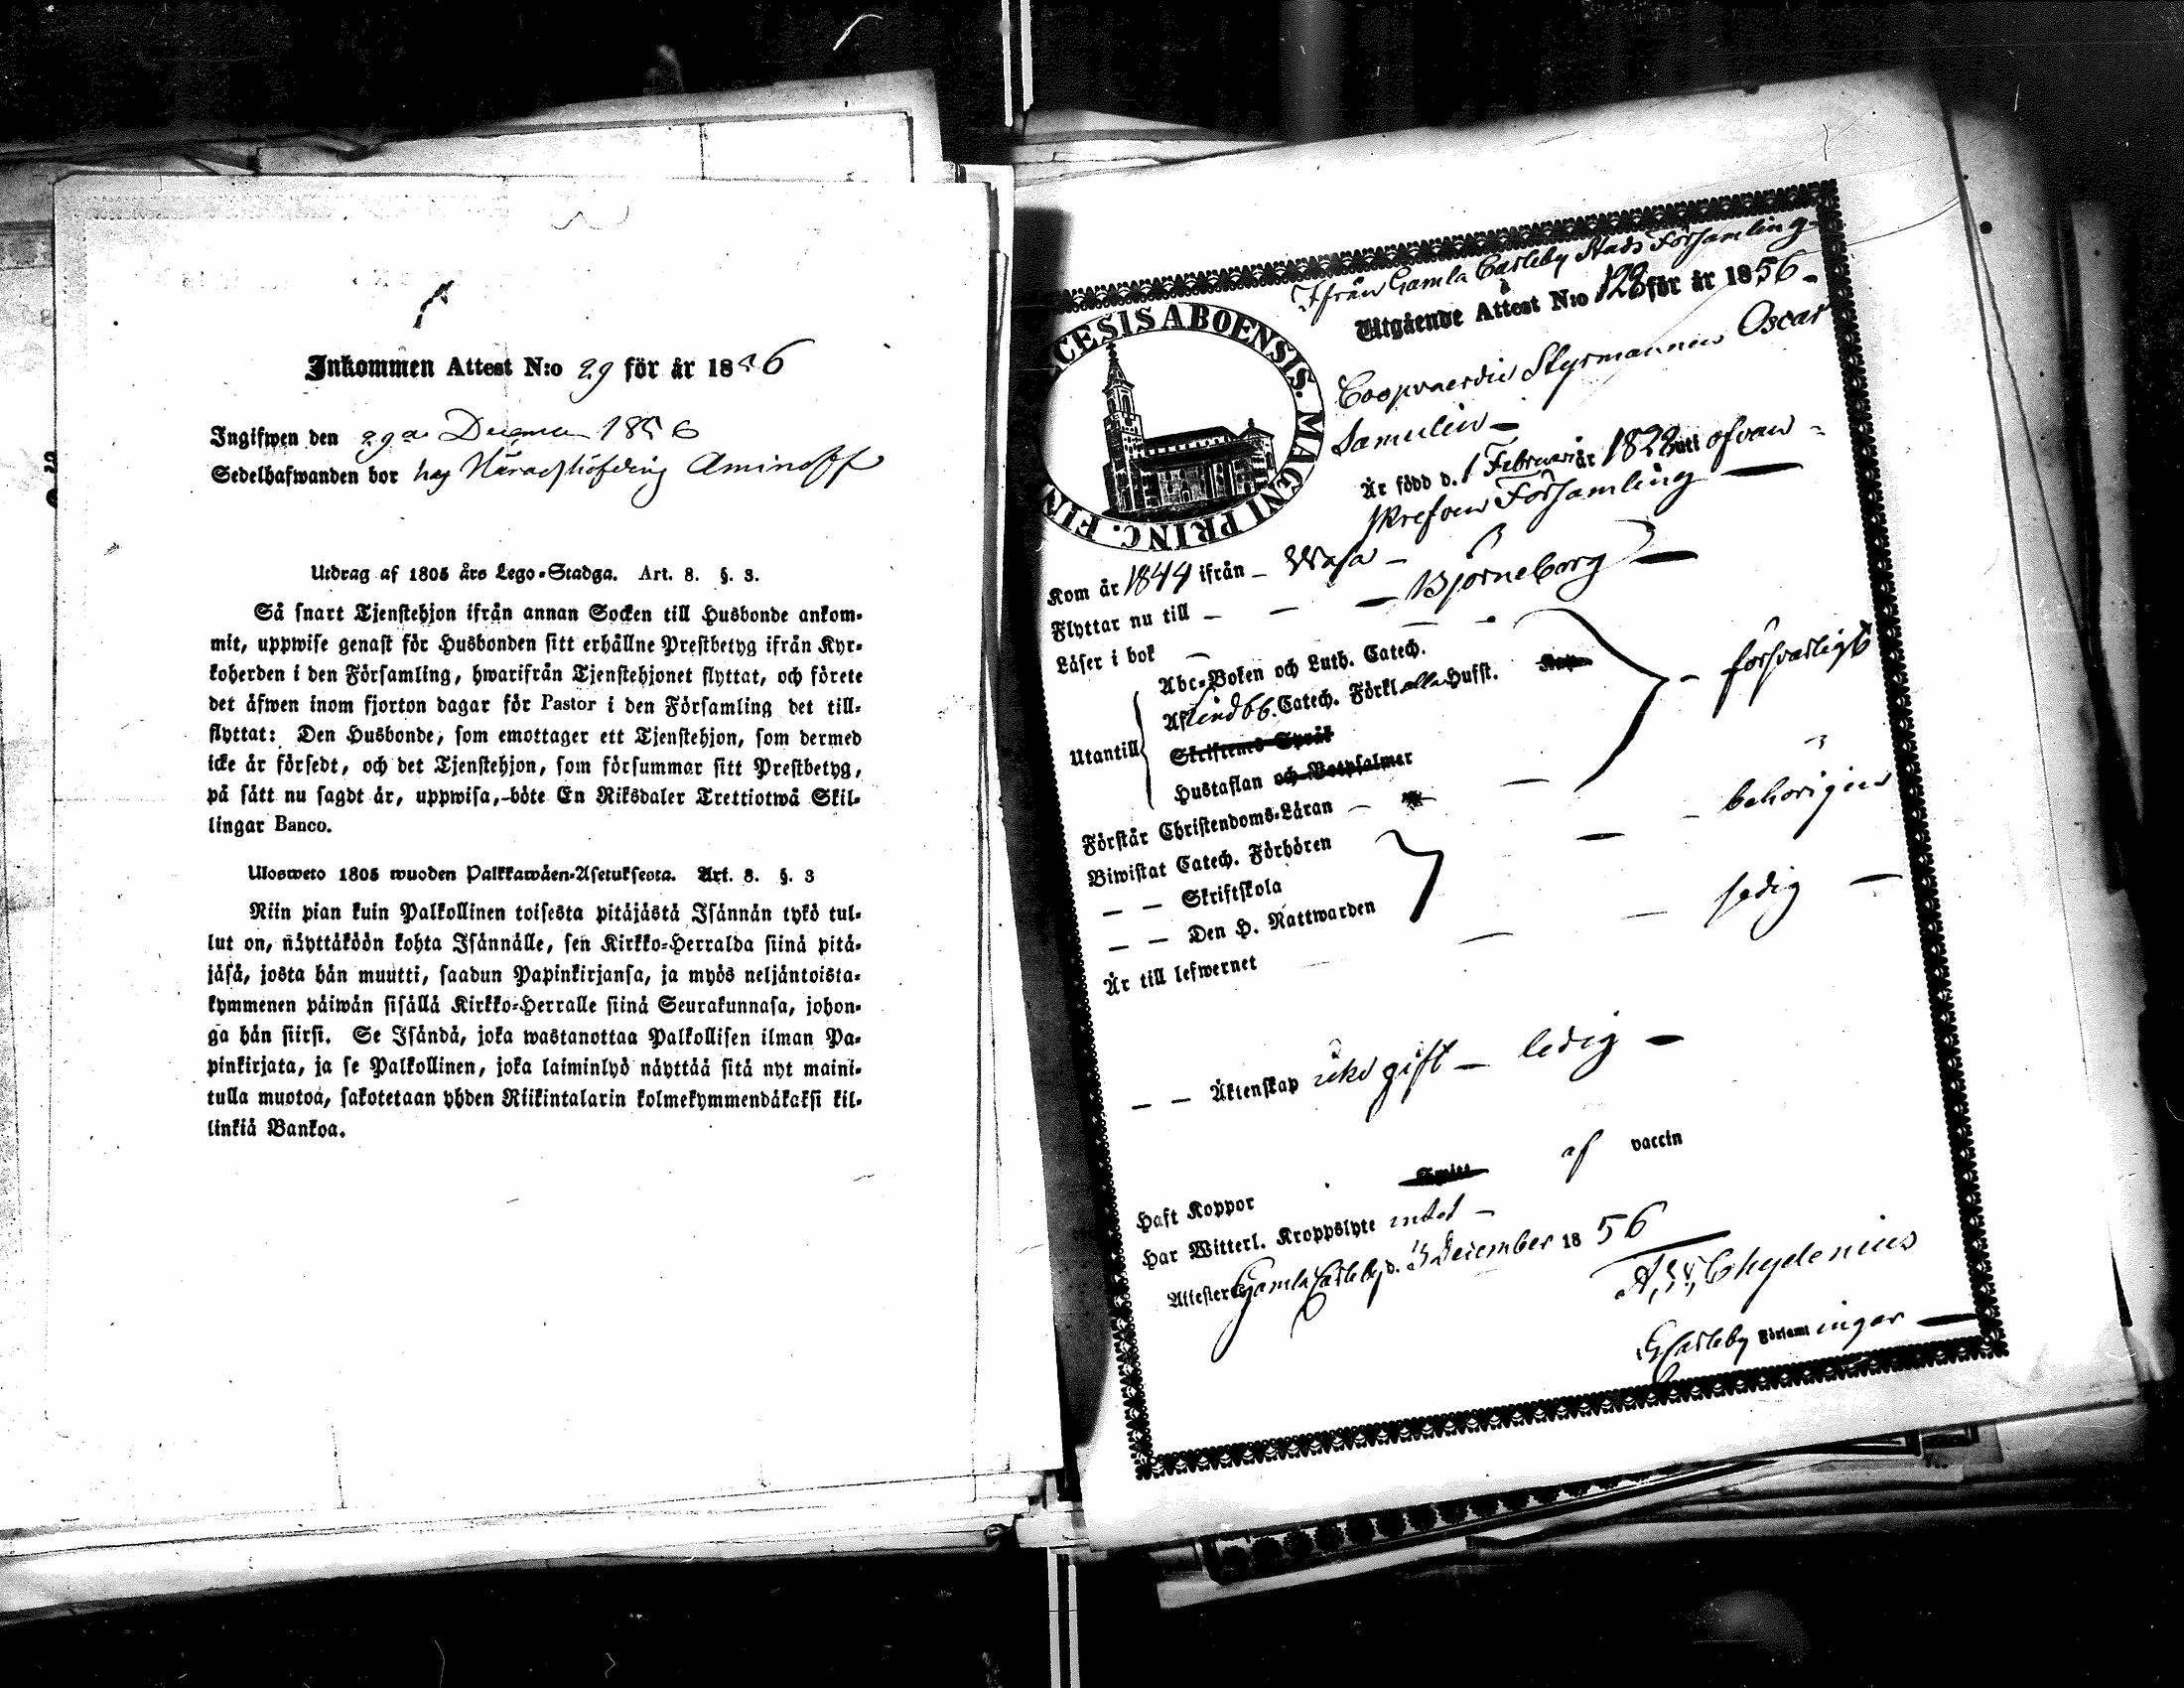 Inkommen Attest N:o 29 för år 1856
Ingifwen den 29de December 1856
Sedelhafwanden bor hos Häradshöfding Aminoff
Utdrag af 1805 års Lego-Stadga. Art. 8. §. 3.
Så snart Tjenstehjon ifrån annan Socken till Husbonde ankom-
mit, uppwise genast för Husbonden sitt erhållne Prestbetyg ifrån Kyr-
koherden i den Församling, hwarifrån Tjenstehjonet flyttat, och förete
det äfwen inom fjorton dagar för Pastor i den Församling det till-
flyttat: Den Husbonde, som emottager ett Tjenstehjon, som dermed
icke är försedt, och det Tjenstehjon, som försummar sitt Prestbetyg,
på sätt nu sagdt är, uppwisa, böte En Riksdaler Trettiotwå Skil-
lingar Banco.
Ulosweto 1805 wuoden Palkkawäen-Asetuksesta. Art. 8. §. 3
Niin pian kuin Palkollinen toisesta pitäjästä Isännän tykö tul-
lut on, näyttäköön kohta Isännälle, sen Kirkko-Herralda siinä pitä-
jäsä, josta hän muutti, saadun Papinkirjansa, ja myös neljäntoista-
kymmenen päiwän sisällä Kirkko-Herralle siinä Seurakunnasa, johon-
ga hän siirsi. Se Isändä, joka wastanottaa Palkollisen ilman Pa-
pinkirjata, ja se Palkollinen, joka laiminlyö näyttää sitä nyt maini-
tulla muotoa, sakotetaan yhden Riikintalarin kolmekymmendäkaksi kil-
linkiä Bankoa.
Ifrån Gamla Carleby Stads Församling
Utgående Attest N:o 128 för år 1856
CESIS ABOENSIS. MAGNI PRINC. FIN
Coopvaerdie Styrmannen Oscar
Samulin
Är född d. 1 Februari år 1823 uti ofvan
skrefven Församling
Kom år 1844 ifrån Wasa
Flyttar nu till Björneborg
Läser i bok
Abc-Boken och Luth. Catech.
Utantill Af Lindbb. Catech. Förkl eller Hufst. försvarligt
Skriftens Språk
Hustaflan och Botpsalmer
Förstår Christendoms-Läran
Biwistat Catech. Förhören behörigen
— — Skriftskola
— — Den H. Nattwarden
Är till lefwernet sedig
— — Äktenskap icke gift — ledig
Haft Koppor af vaccin
Har Witterl. Kroppslyte intet
Attesterar Gamla Carleby d. December 1856
Chydenius
GCarleby Församlingar